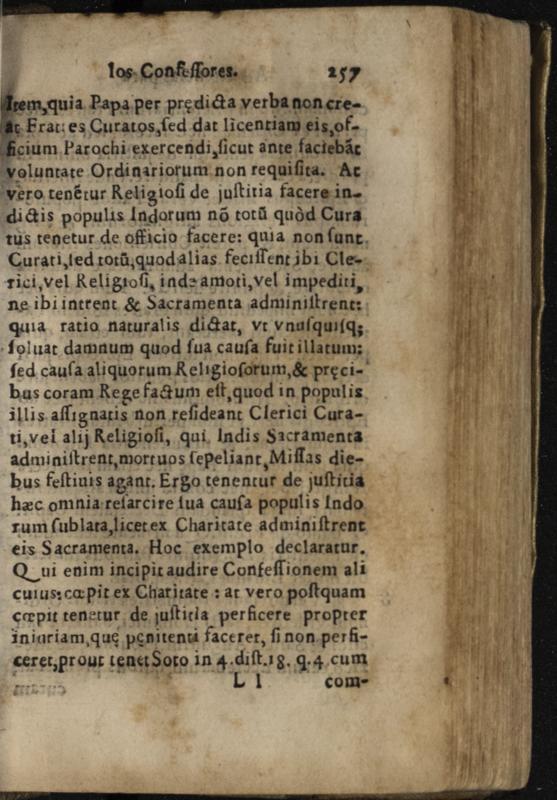 los Confeſſores. 257
Item,quia Papa per prędicta verba non cre-
at Fratres Curatos,ſed dat licentiam eis,of-
ficium Parochi exercendi,ſicut ante faciebāt
voluntate Ordinariorum non requiſita. At
vero tenētur Religioſi de juſtitia facere in-
dictis populis Indorum nō totū quòd Cura
tus tenetur de officio facere: quia non ſunt
Curati,ſed totū,quod alias feciſſent ibi Cle-
rici,vel Religioſi, inde amoti,vel impediti,
ne ibi intrent & Sacramenta adminiſtrent:
quia ratio naturalis dictat, vt vnuſquiſq;
ſoluat damnum quod ſua cauſa fuit illatum:
ſed cauſa aliquorum Religioſorum,& pręci-
bus coram Rege factum eſt,quod in populis
illis aſſignatis non reſideant Clerici Cura-
ti,vel alij Religioſi, qui Indis Sacramenta
adminiſtrent,mortuos ſepeliant,Miſſas die-
bus feſtiuis agant. Ergo tenentur de juſtitia
hæc omnia reſarcire ſua cauſa populis Indo
rum ſublata,licet ex Charitate adminiſtrent
eis Sacramenta. Hoc exemplo declaratur.
Qui enim incipit audire Confeſſionem ali
cuius:cœpit ex Charitate : at vero poſtquam
cœpit tenetur de juſtitia perficere propter
iniuriam,quę pęnitenti faceret, ſi non perfi-
ceret,prout tenet Soto in 4.diſt.18. q.4 cum
L l com-